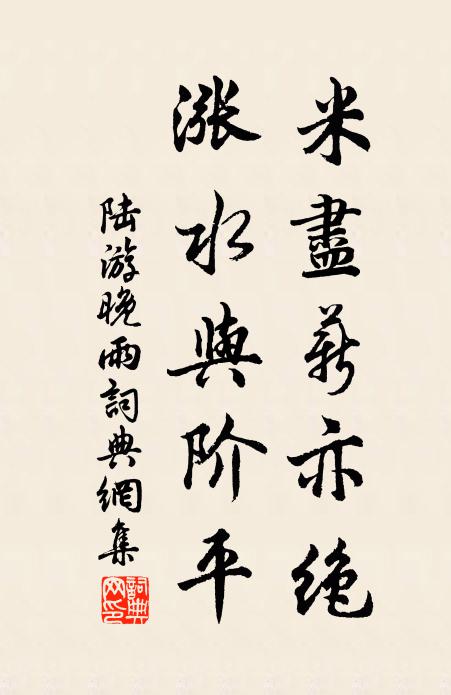 米盡薪亦绝
漲水與阶平
陆游晚雨詞典網集
詞典网印